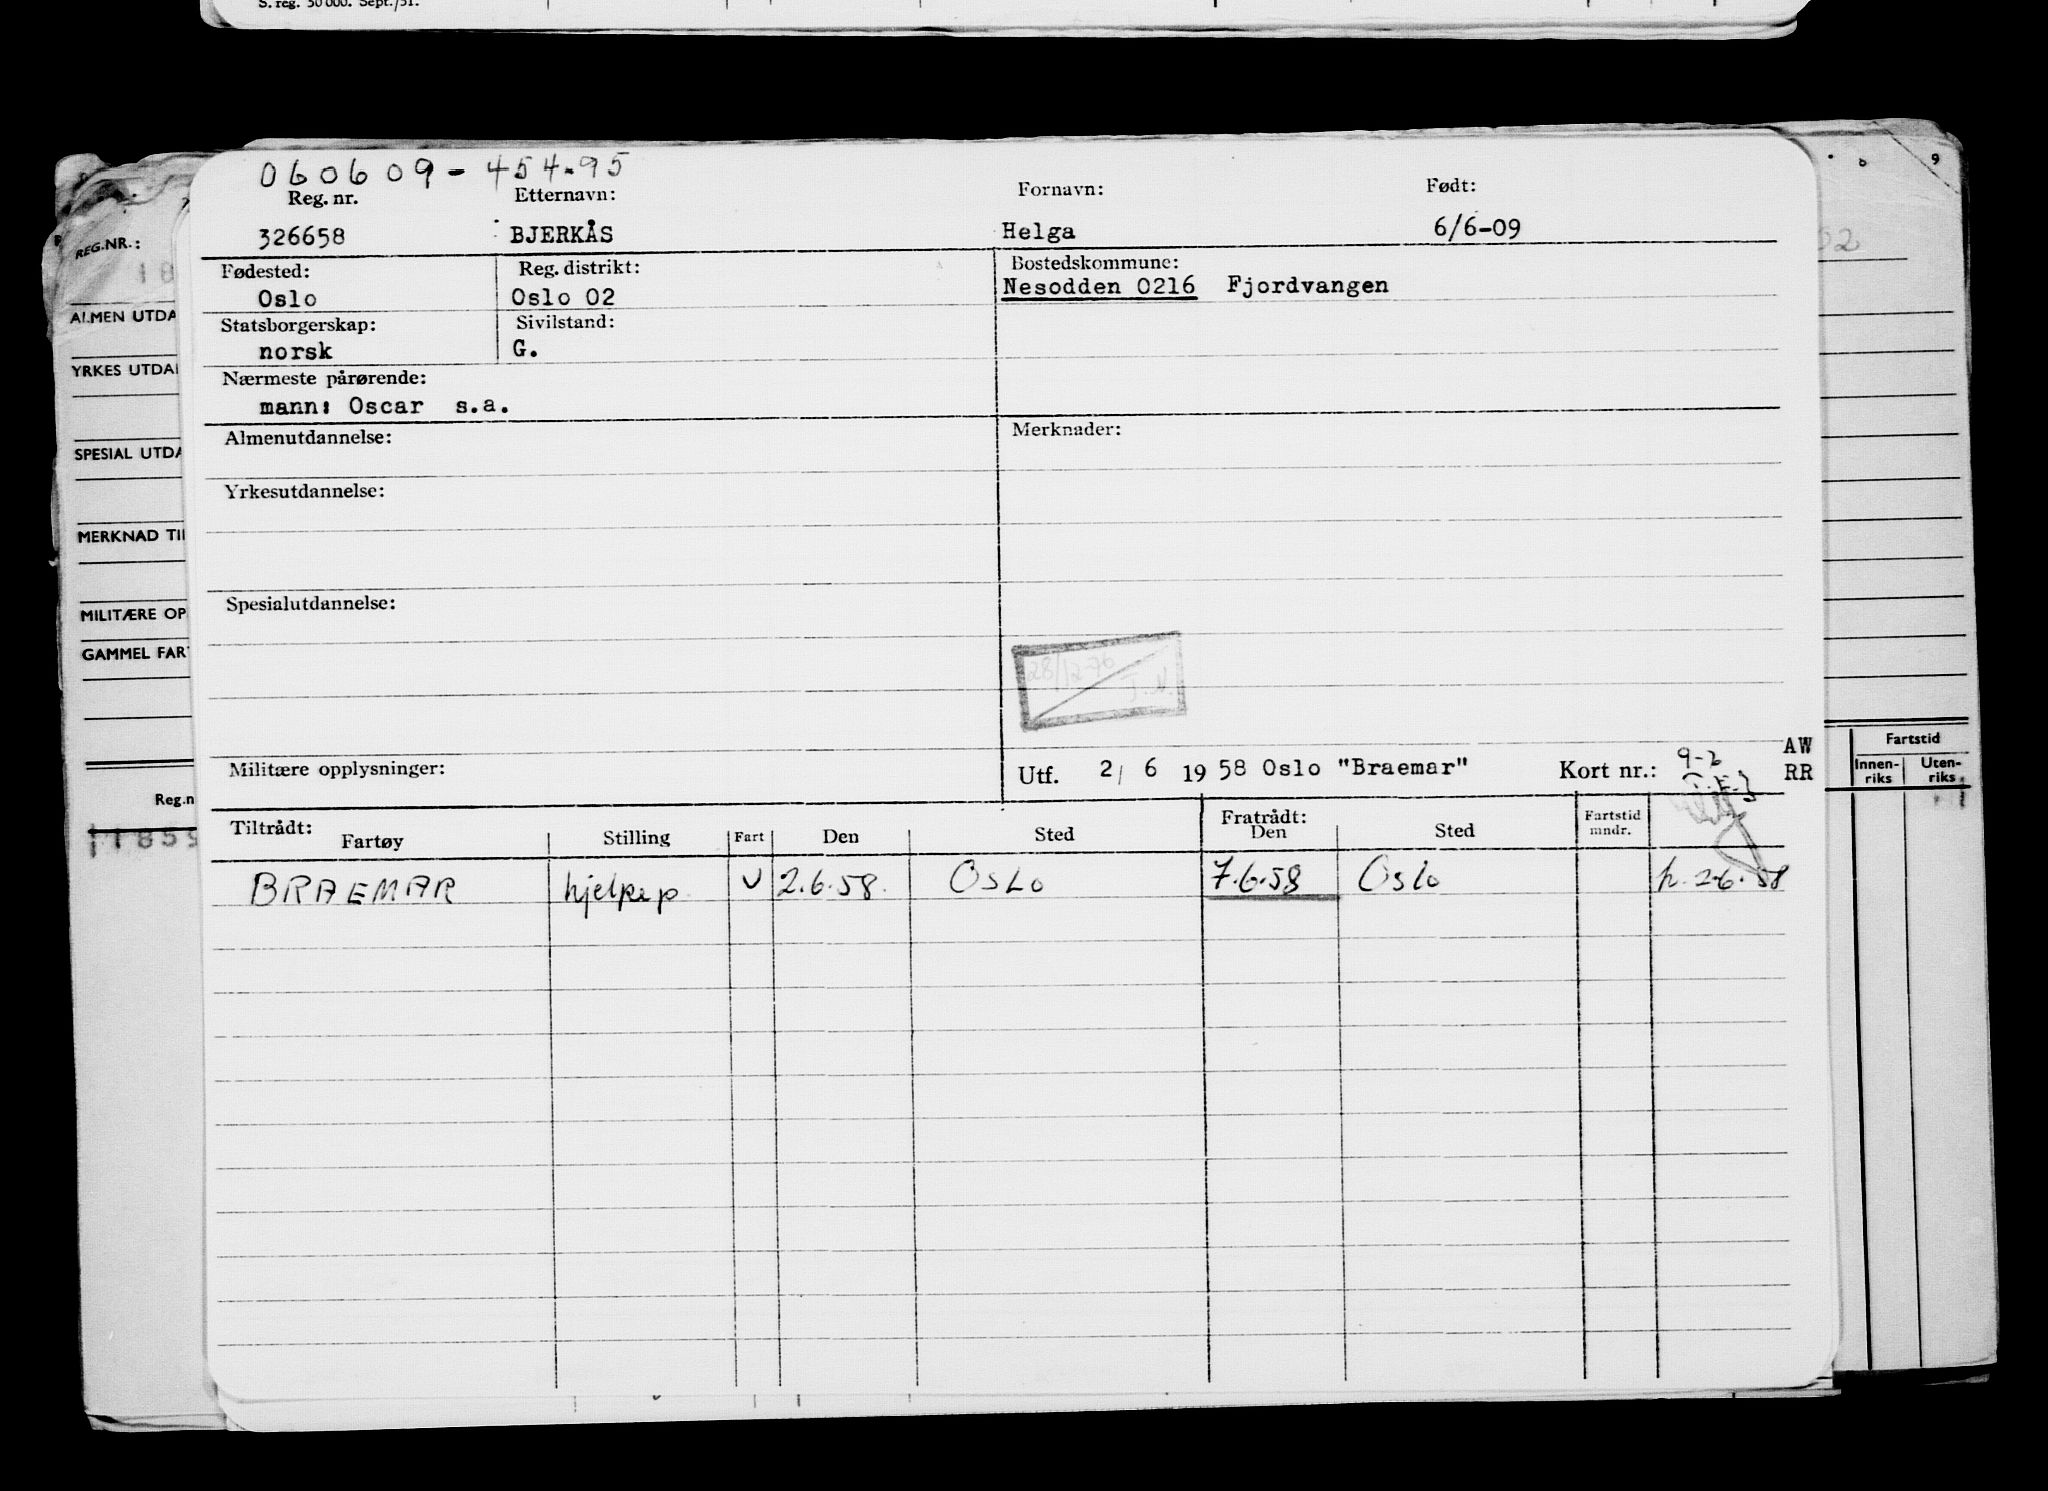 S. reg. 50 000. Sept./51.
9
060609 - 454.95
Reg. nr. Etternavn: Fornavn: Født:
326658 BJERKÅS Helga 6/6-09
REG.NR.:
Fødested: Reg. distrikt: Bostedskommune:
Oslo Oslo 02 Nesodden 0216 Fjordvangen
ALMEN UTDA
Statsborgerskap: Sivilstand:
norsk G.
YRKES UTDA
Nærmeste pårørende:
mann: Oscar s.a.
Almenutdannelse: Merknader:
SPESIAL UTDA
Yrkesutdannelse:
MERKNAD TIL
Spesialutdannelse:
MILITÆRE OP
GAMMEL FAR
28/12-76
J.N.
Militære opplysninger: Utf. 2/ 6 19 58 Oslo "Braemar" Kort nr.: AW
RR
Fartstid
Innen-riks Uten-riks
Reg.n
1185
Tiltrådt: Fratrådt:
Fartøy Stilling Fart Den Sted Den Sted Fartstid mndr.
BRAEMAR hjelpep. U 2.6.58. OSLO 7.6.58 Oslo p. 2.6.58